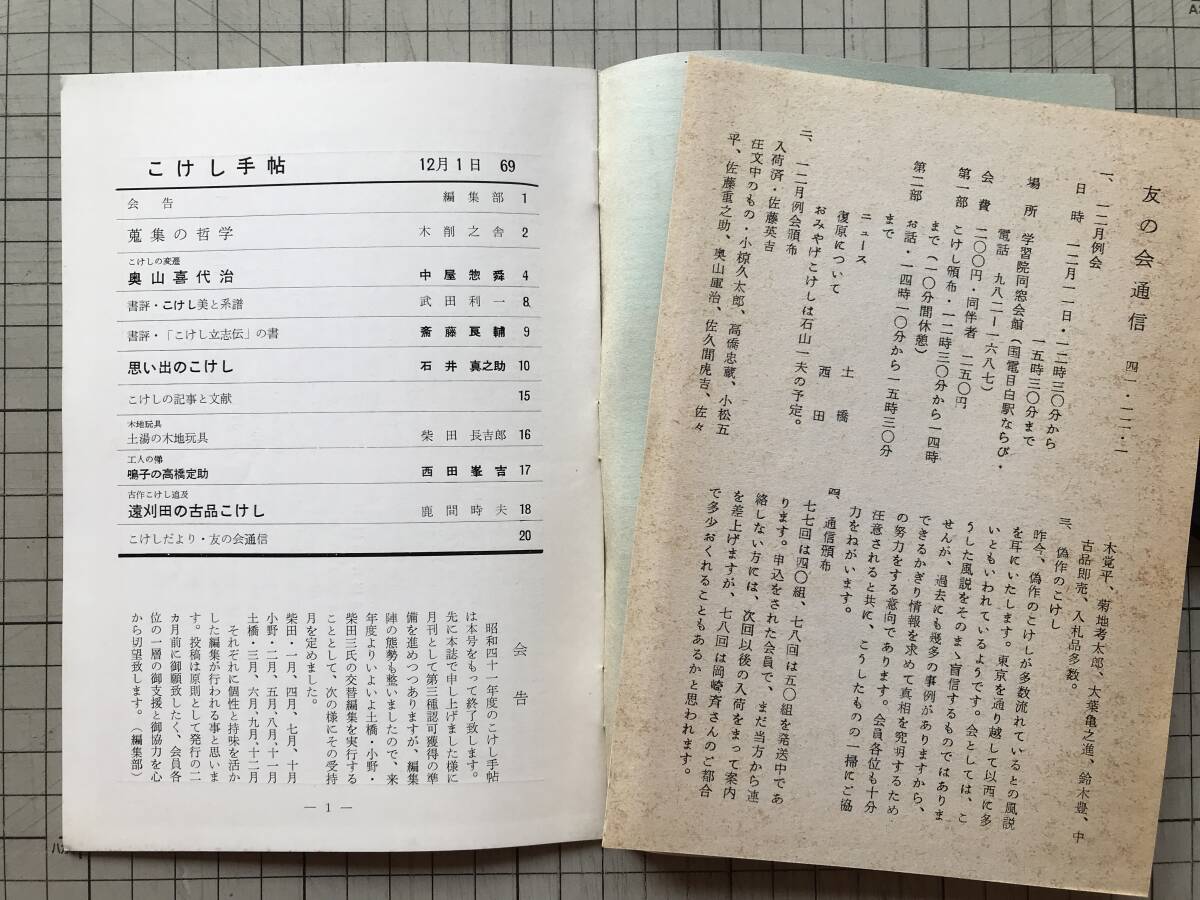 こけし手帖　12月1日　69
会告　編集部　1
蒐集の哲学　木削之舎　2
こけしの変遷
奥山喜代治　中屋惣舜　4
書評・こけし美と系譜　武田利一　8
書評・「こけし立志伝」の書　斎藤良輔　9
思い出のこけし　石井真之助　10
こけしの記事と文献　15
木地玩具
土湯の木地玩具　柴田長吉郎　16
工人の俤
鳴子の高橋定助　西田峯吉　17
古作こけし追及
遠刈田の古品こけし　鹿間時夫　18
こけしだより・友の会通信　20
会告
昭和四十一年度のこけし手帖
は本号をもって終了致します。
先に本誌で申し上げました様に
月刊として第三種認可獲得の準
備を進めつつありますが、編集
陣の態勢も整いましたので、来
年度よりいよいよ土橋・小野・
柴田三氏の交替編集を実行する
こととして、次の様にその受持
月を定めました。
柴田・一月、四月、七月、十月
小野・二月、五月、八月、十一月
土橋・三月、六月、九月、十二月
それぞれに個性と持味を活か
した編集が行われる事と思いま
す。投稿は原則として発行の二
カ月前に御願致したく、会員各
位の一層の御支援と御協力を心
から切望致します。（編集部）
― 1 ―
友の会通信　四一・一二・一
一、一二月例会
日時　一二月一一日・一二時三〇分から
一五時三〇分まで
場所　学習院同窓会館（国電目白駅ならび・
電話　九八二ー一六八七）
会費　二〇〇円・同伴者　二五〇円
第一部　こけし頒布・一二時三〇分から一四時
まで（一〇分間休憩）
第二部　お話・一四時一〇分から一五時三〇分
まで
ニュース　土橋
復原について　西田
おみやげこけしは石山一夫の予定。
二、一二月例会頒布
入荷済・佐藤英吉
注文中のもの・小椋久太郎、高橋忠蔵、小松五
平、佐藤重之助、奥山庫治、佐久間虎吉、佐々
木覚平、菊地孝太郎、大葉亀之進、鈴木豊、中
古品即売、入札品多数。
三、偽作のこけし
昨今、偽作のこけしが多数流れているとの風説
を耳にいたします。東京を通り越して以西に多
いともいわれているようです。会としては、こ
うした風説をそのまゝ盲信するものではありま
せんが、過去にも幾多の事例がありますから、
できるかぎり情報を求めて真相を究明するため
の努力をする意向であります。会員各位も十分
任意されると共に、こうしたものの一掃にご協
力をねがいます。
四、通信頒布
七七回は四〇組、七八回は五〇組を発送中であ
ります。申込をされた会員で、まだ当方から連
絡しない方には、次回以後の入荷をまって案内
を差上げますが、七八回は岡崎斉さんのご都合
で多少おくれることもあるかと思われます。